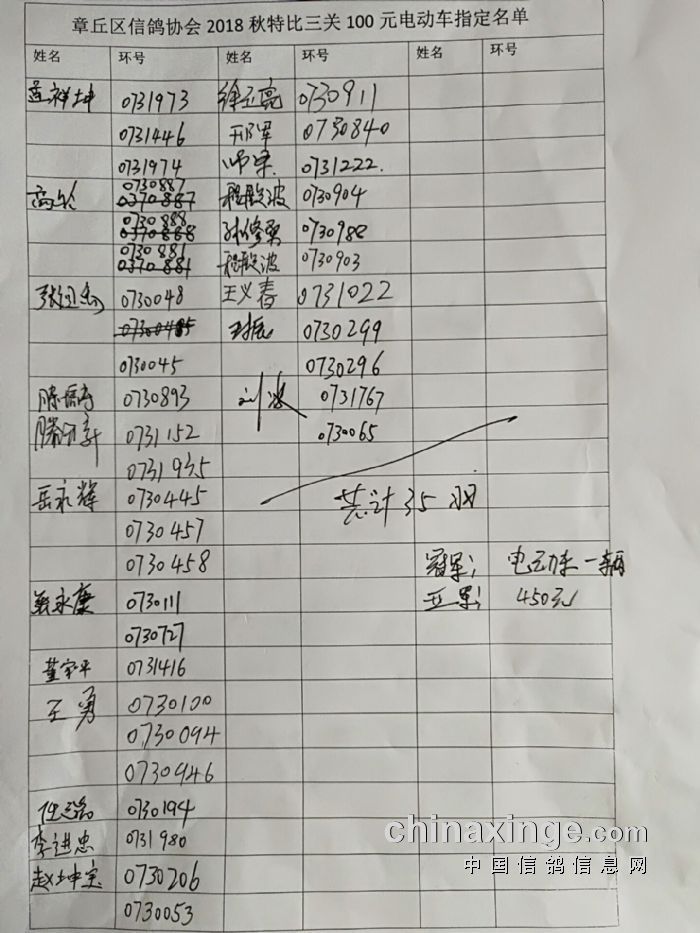 章丘区信鸽协会2018秋特比三关100元电动车指定名单
姓名 环号 姓名 环号 姓名 环号
祥坤 0731973 徐立亮 0730911
0731446 邢军 0730840
0731974 帅军 0731222.
0730887
0370887 程殿波 0730904
0730888
0370888 孙修勇 0730988
0730881
0370881 程殿波 0730903
张 0730048 王义春 0731022
0730299
0730045 0730296
0730893 刘波 0731767
0731152 0730065
0731935
岳永辉 0730445 共计35羽
0730457
0730458 冠军; 电动车一辆
永康 0730111 亚军; 450元
0730727
董家平 0731416
王勇 0730100
0730094
0730946
任 0730194
李进忠 0731980
赵坤宝 0730206
0730053
chinaxinge.com
中国信鸽信息网